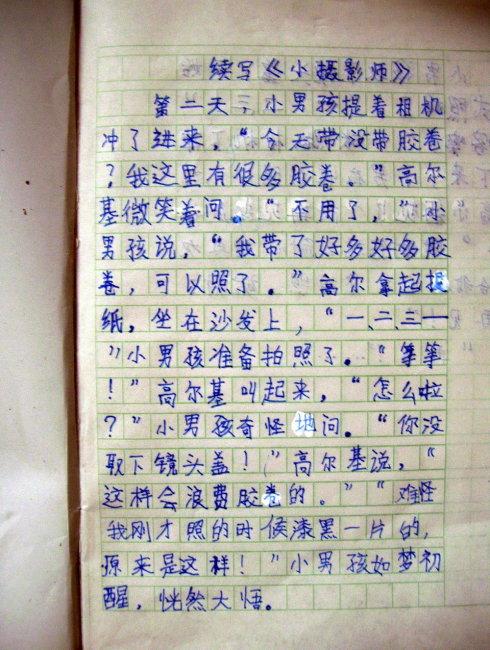 续写《小摄影师》
第二天，小男孩提着相机
冲了进来，“今天带没带胶卷
？我这里有很多胶卷。”高尔
基微笑着问。“不用了，”小
男孩说，“我带了好多好多胶
卷，可以照了。”高尔拿起报
纸，坐在沙发上，“一、二、三——
”小男孩准备拍照了。“等等
！”高尔基叫起来，“怎么啦
？”小男孩奇怪地问。“你没
取下镜头盖！”高尔基说，“
这样会浪费胶卷的。”“难怪
我刚才照的时候漆黑一片的，
原来是这样！”小男孩如梦初
醒，恍然大悟。